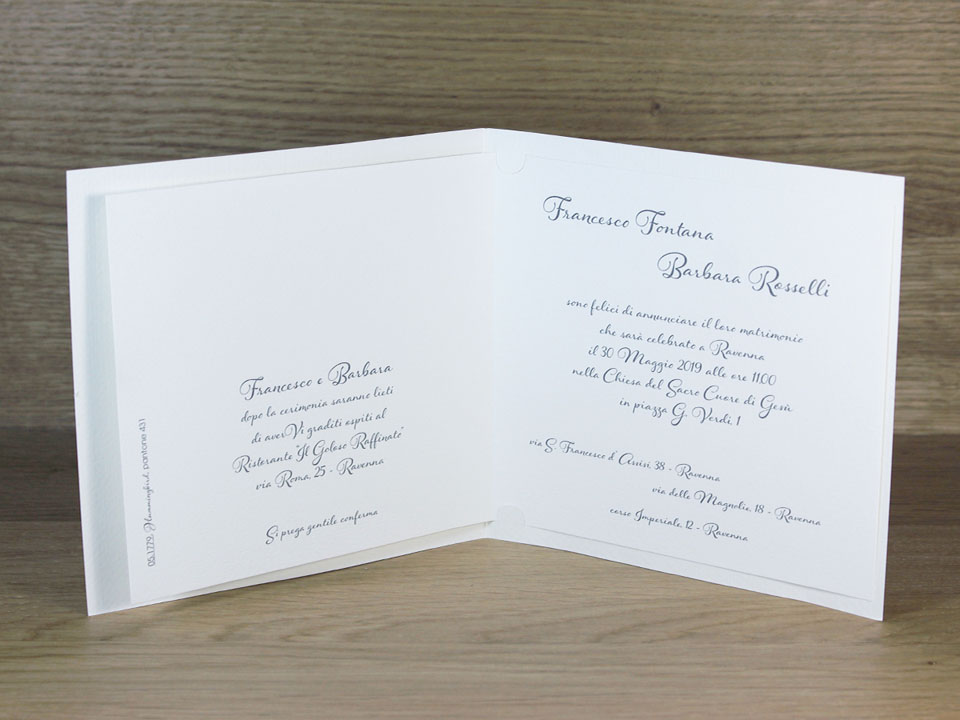 Francesco e Barbara
dopo la cerimonia saranno lieti
di averVi graditi ospiti al
Ristorante "Il Goloso Raffinato"
via Roma, 25 - Ravenna
Si prega gentile conferma
05.1779, Hummingbird, pantone 431
Francesco Fontana
Barbara Rosselli
sono felici di annunciare il loro matrimonio
che sarà celebrato a Ravenna
il 30 Maggio 2019 alle ore 11.00
nella Chiesa del Sacro Cuore di Gesù
in piazza G. Verdi, 1
via S. Francesco d'Assisi, 38 - Ravenna
via delle Magnolie, 18 - Ravenna
corso Imperiale, 12 - Ravenna